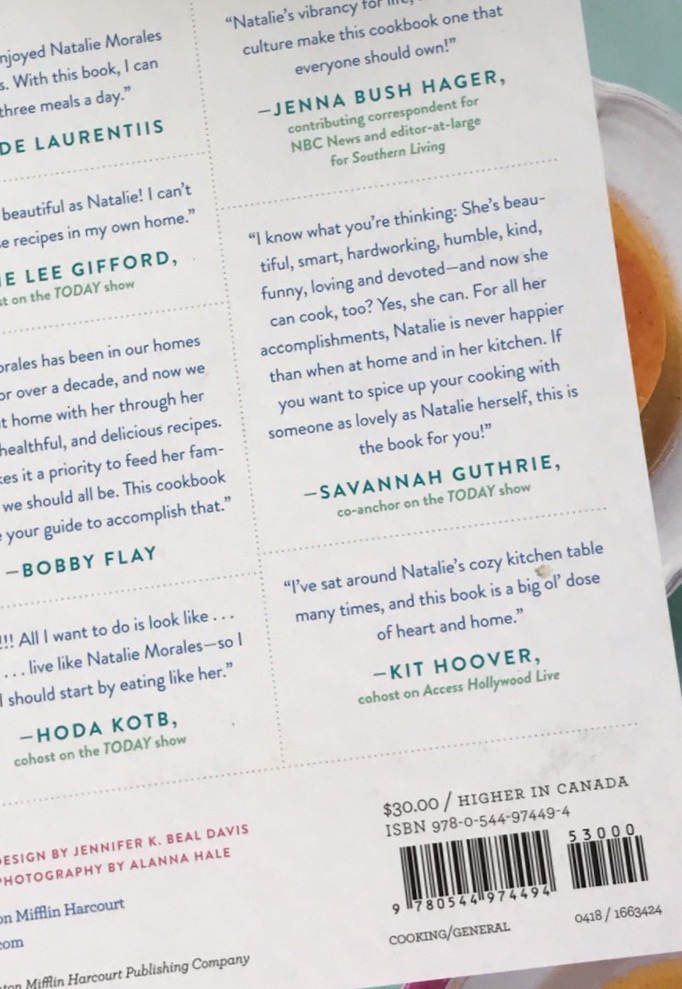 njoyed Natalie Morales
s. With this book, I can
three meals a day.”
DE LAURENTIIS
beautiful as Natalie! I can’t
e recipes in my own home.”
IE LEE GIFFORD,
st on the TODAY show
orales has been in our homes
or over a decade, and now we
t home with her through her
healthful, and delicious recipes.
kes it a priority to feed her fam-
we should all be. This cookbook
your guide to accomplish that.”
—BOBBY FLAY
!!! All I want to do is look like . . .
. . . live like Natalie Morales—so I
I should start by eating like her.”
—HODA KOTB,
cohost on the TODAY show
“Natalie’s vibrancy for life,
culture make this cookbook one that
everyone should own!”
—JENNA BUSH HAGER,
contributing correspondent for
NBC News and editor-at-large
for Southern Living
“I know what you’re thinking: She’s beau-
tiful, smart, hardworking, humble, kind,
funny, loving and devoted—and now she
can cook, too? Yes, she can. For all her
accomplishments, Natalie is never happier
than when at home and in her kitchen. If
you want to spice up your cooking with
someone as lovely as Natalie herself, this is
the book for you!”
—SAVANNAH GUTHRIE,
co-anchor on the TODAY show
“I’ve sat around Natalie’s cozy kitchen table
many times, and this book is a big ol’ dose
of heart and home.”
—KIT HOOVER,
cohost on Access Hollywood Live
DESIGN BY JENNIFER K. BEAL DAVIS
PHOTOGRAPHY BY ALANNA HALE
on Mifflin Harcourt
com
ton Mifflin Harcourt Publishing Company
$30.00 / HIGHER IN CANADA
ISBN 978-0-544-97449-4
53000
9 780544 974494
COOKING/GENERAL
0418 / 1663424